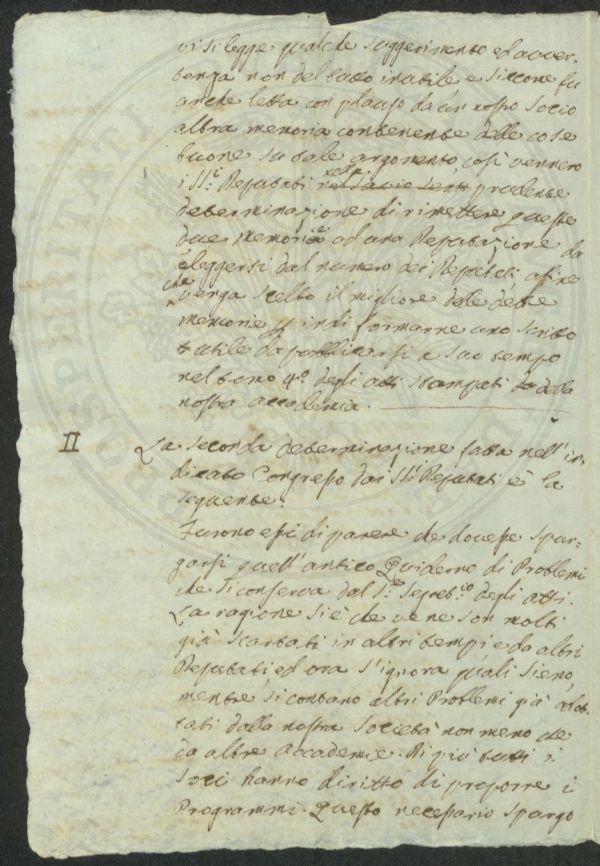 vi si legge qualche suggerimento ed avver-
tenza non del tutto inutile e siccome fu
anche letta con plauso da un nostro Socio
altra memoria contenente delle cose
buone su tale argomento, così vennero
i SS.ri Deputati nella prudente
determinazione di rimettere queste
due memorie ad una Deputazione da
eleggersi dal numero dei Deputati afine
che venga scelto il migliore dele dette
memorie p indi formarne uno scritto
utile da pubblicarsi a suo tempo
nel tomo 4.o degli atti stampati della
nostra accademia.
II La seconda determinazione fatta nell' in-
dicato Congresso dai SS.ri Deputati è la
seguente.
Furono essi di parere che dovesse spur-
garsi quell' antico Quiderno di Problemi
che si conserva dal S.r Segret.rio degli atti.
La ragione si è che ve ne son molti
già scartati in altri tempi e da altri
Deputati ed ora s' ignora quali sieno,
mentre si contano altri Problemi già adot-
tati dalla nostra Società non meno che
da altre Accademie. Di più tutti i
Soci hanno diritto di proporre i
Programmi. Questo necessario spurgo